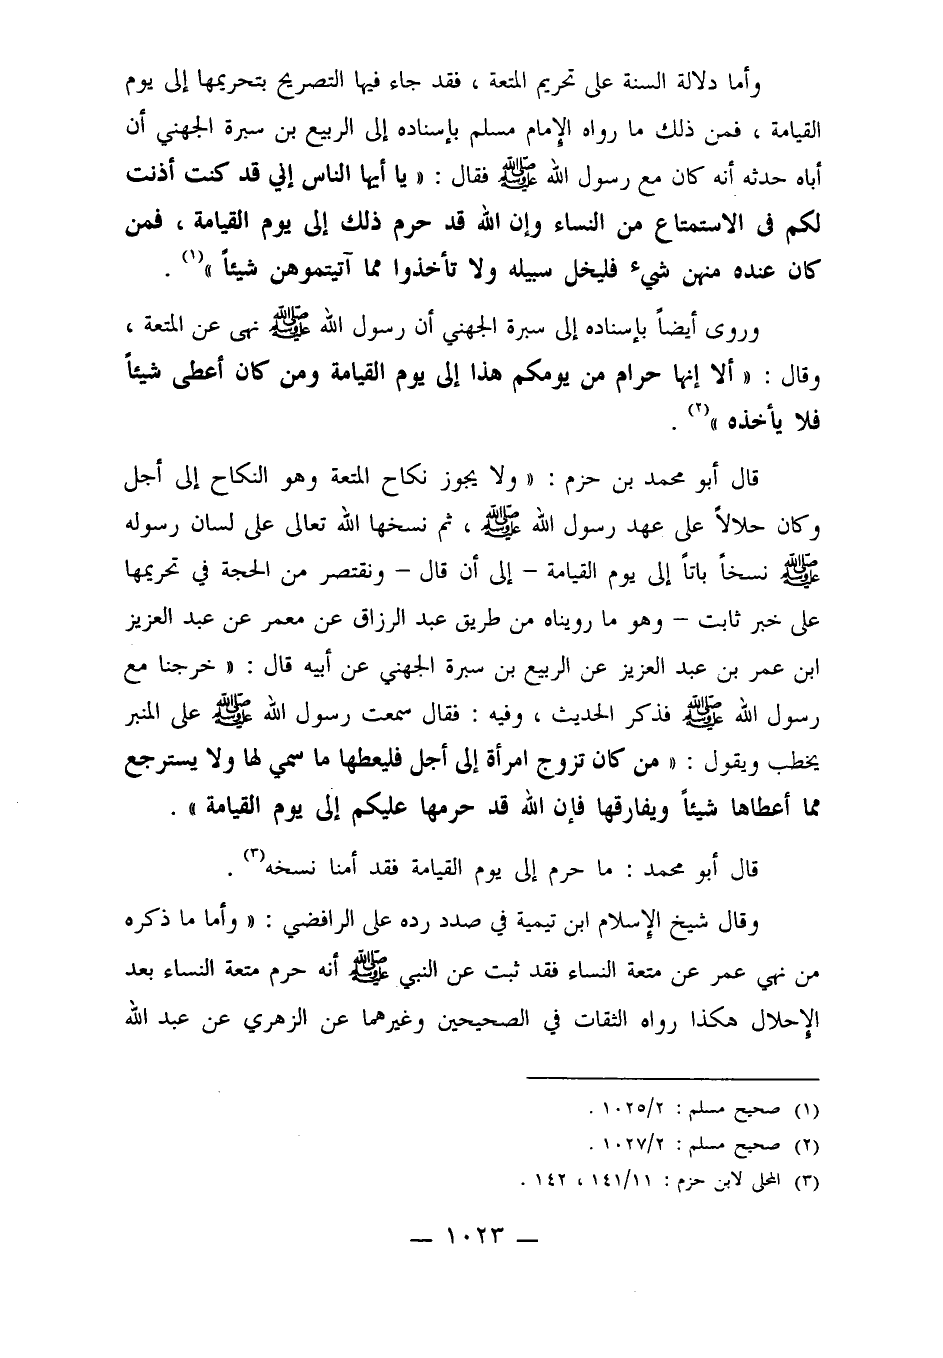 وأما دلالة السنة على تحريم المتعة ، فقد جاء فيها التصريح بتحريمها إلى يوم
القيامة ، فمن ذلك ما رواه الإمام مسلم بإسناده إلى الربيع بن سبرة الجهني أن
أباه حدثه أنه كان مع رسول الله ﷺ فقال : « يا أيها الناس إني قد كنت أذنت
لكم فى الاستمتاع من النساء وإن الله قد حرم ذلك إلى يوم القيامة ، فمن
كان عنده منهن شيء فليخل سبيله ولا تأخذوا مما آتيتموهن شيئاً »(١) .
وروى أيضاً بإسناده إلى سبرة الجهني أن رسول الله ﷺ نهى عن المتعة ،
وقال : « ألا إنها حرام من يومكم هذا إلى يوم القيامة ومن كان أعطى شيئاً
فلا يأخذه »(٢) .
قال أبو محمد بن حزم : « ولا يجوز نكاح المتعة وهو النكاح إلى أجل
وكان حلالاً على عهد رسول الله ﷺ ، ثم نسخها الله تعالى على لسان رسوله
ﷺ نسخاً باتاً إلى يوم القيامة – إلى أن قال – ونقتصر من الحجة في تحريمها
على خبر ثابت – وهو ما رويناه من طريق عبد الرزاق عن معمر عن عبد العزيز
ابن عمر بن عبد العزيز عن الربيع بن سبرة الجهني عن أبيه قال : « خرجنا مع
رسول الله ﷺ فذكر الحديث ، وفيه : فقال سمعت رسول الله ﷺ على المنبر
يخطب ويقول : « من كان تزوج امرأة إلى أجل فليعطها ما سمي لها ولا يسترجع
مما أعطاها شيئاً ويفارقها فإن الله قد حرمها عليكم إلى يوم القيامة » .
قال أبو محمد : ما حرم إلى يوم القيامة فقد أمنا نسخه(٣) .
وقال شيخ الإسلام ابن تيمية في صدد رده على الرافضي : « وأما ما ذكره
من نهي عمر عن متعة النساء فقد ثبت عن النبي ﷺ أنه حرم متعة النساء بعد
الإحلال هكذا رواه الثقات في الصحيحين وغيرهما عن الزهري عن عبد الله
(١) صحيح مسلم : ١٠٢٥/٢ .
(٢) صحيح مسلم : ١٠٢٧/٢ .
(٣) المحلى لابن حزم : ١٤١/١١ ، ١٤٢ .
— ١٠٢٣ —